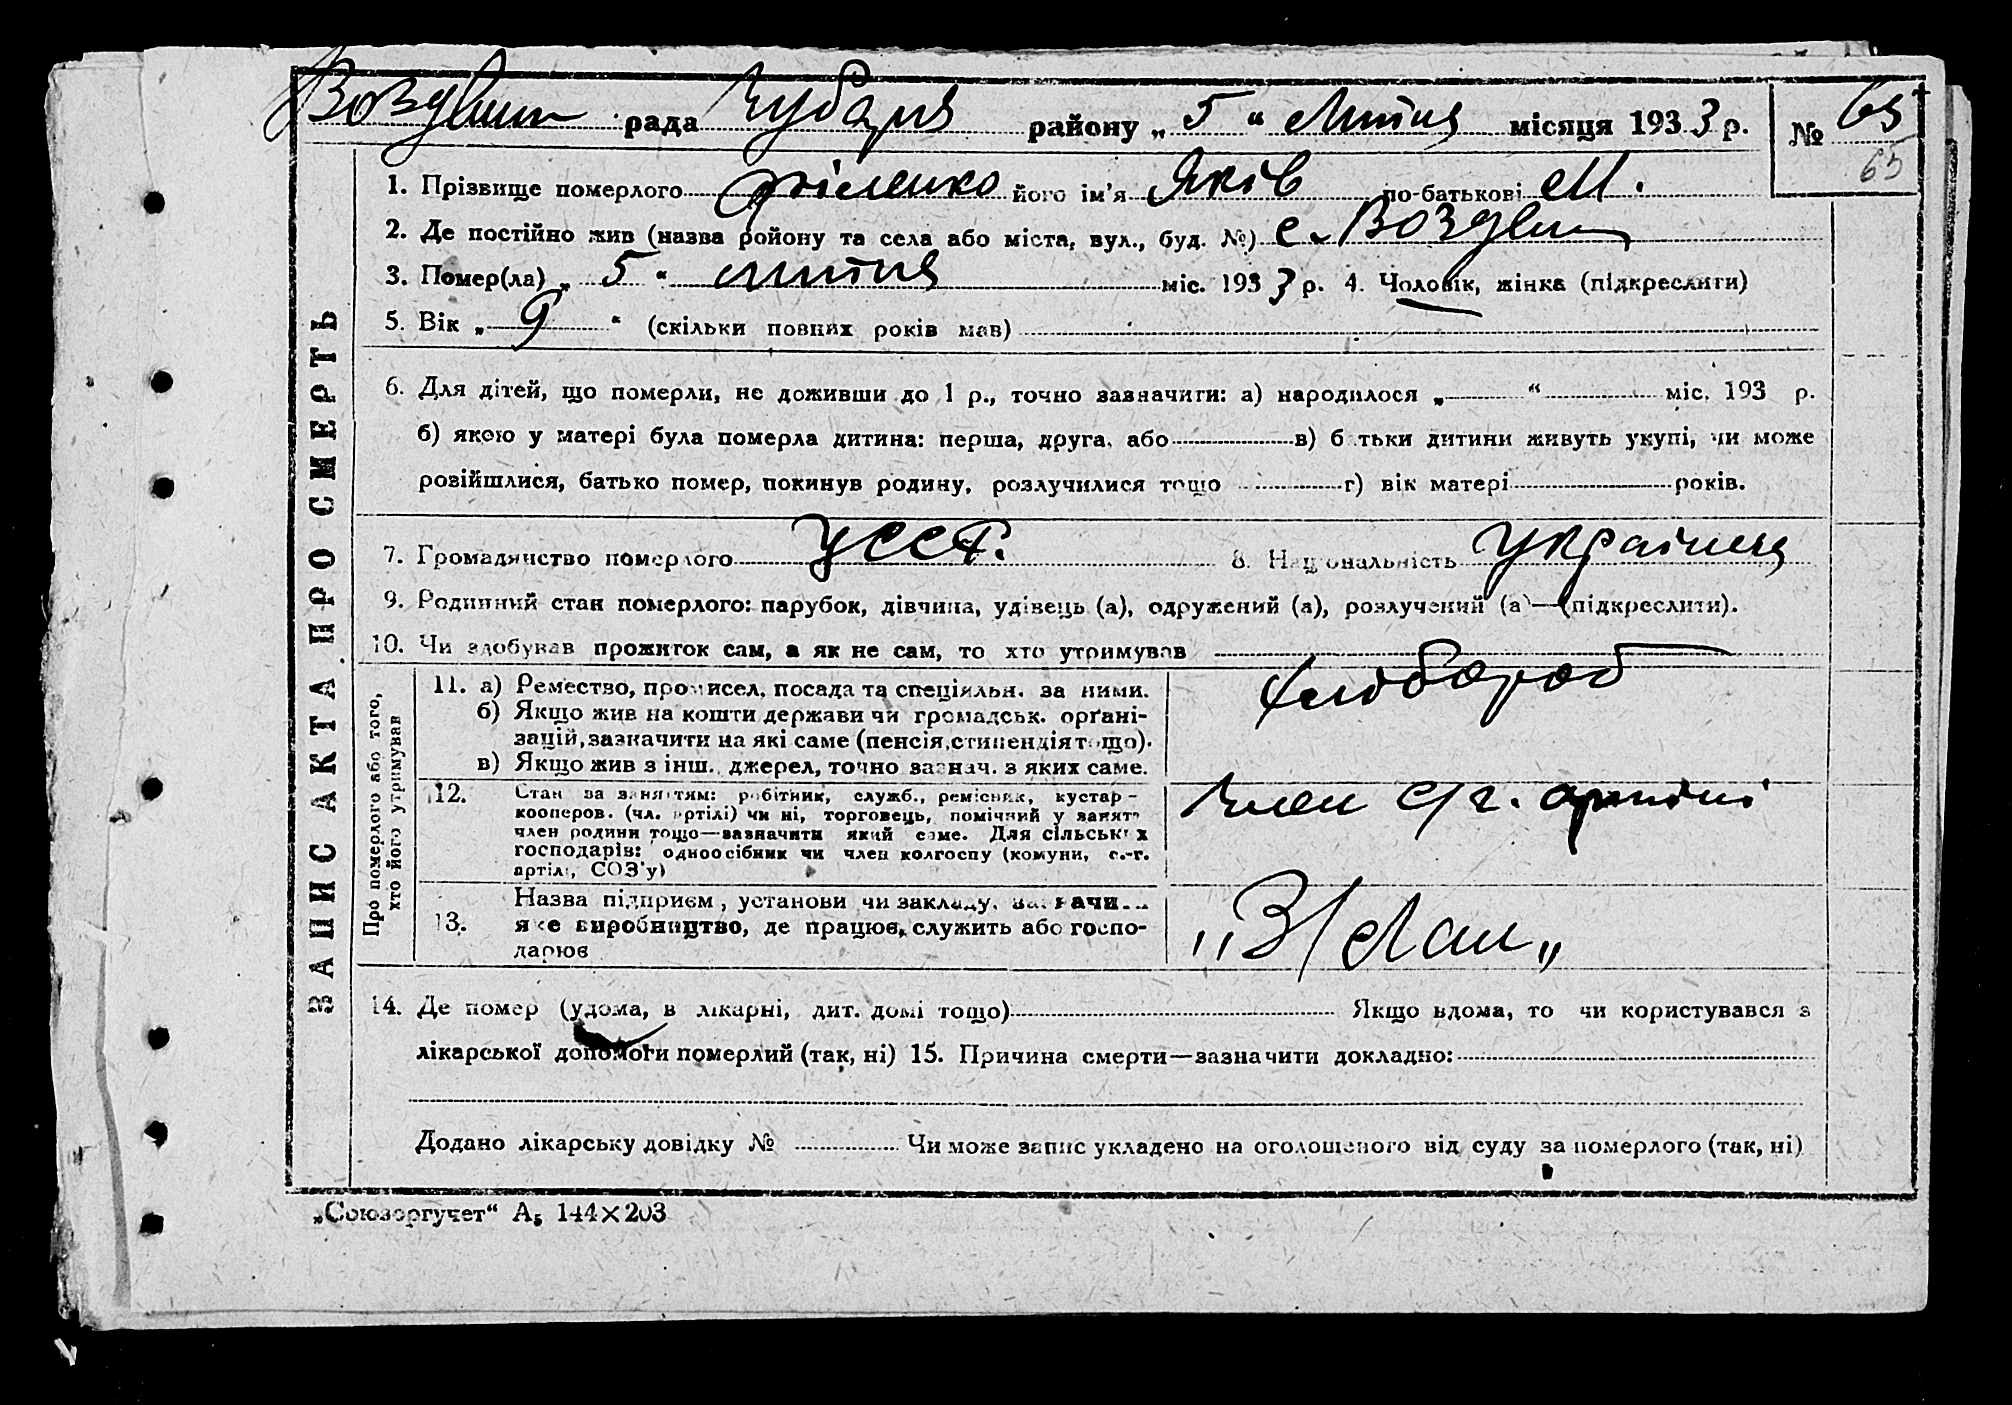 Воздвиж рада Чубаря району „ 5 “ Липня місяця 1933 р. № 65
65
1. Прізвище померлого Фісенко його ім'я Яків по-батькові М.
2. Де постійно жив (назва ройону та села або міста, вул., буд. №) с. Воздвиж
3. Помер(ла) „ 5 “ липня міс. 1933 р. 4. Чоловік, жінка (підкреслити)
5. Вік „ 9 “ (скільки повних років мав)
6. Для дітей, що померли, не доживши до 1 р., точно зазначити: а) народилося „ “ міс. 193 р.
б) якою у матері була померла дитина: перша, друга, або в) б тьки дитини живуть укупі, чи може
розійшлися, батько помер, покинув родину, розлучилися тощо г) вік матері років.
7. Громадянство померлого УССР. 8. Національність Українец
9. Родинний стан померлого: парубок, дівчина, удівець (а), одружений (а), розлучений (а)—(підкреслити).
10. Чи здобував прожиток сам, а як не сам, то хто утримував
ЗАПИС АКТА ПРО СМЕРТЬ
Про померлого або того,
хто його утримував
11. а) Ремество, промисел, посада та спеціяльн. за ними. хлібороб
б) Якщо жив на кошти держави чи громадськ. орґані-
зацій, зазначити на які саме (пенсія, стипендія тощо).
в) Якщо жив з інш. джерел, точно зазнач. з яких саме.
12. Стан за заняттям: робітник, служб., ремісник, кустар- Член с/г. артілі
кооперов. (чл. артілі) чи ні, торговець, помічний у занятт
член родини тощо—зазначити який саме. Для сільських
господарів: одноосібник чи член колгоспу (комуни, с.-г.
артілі, СОЗ'у)
13. Назва підприєм, установи чи закладу, зазначи
яке виробництво, де працює, служить або госпо- „З/Лан„
дарює
14. Де помер (удома, в лікарні, дит. домі тощо) Якщо вдома, то чи користувався з
лікарської допомоги померлий (так, ні) 15. Причина смерти—зазначити докладно:
Додано лікарську довідку № Чи може запис укладено на оголошеного від суду за померлого (так, ні)
„Союзоргучет“ А5 144×203